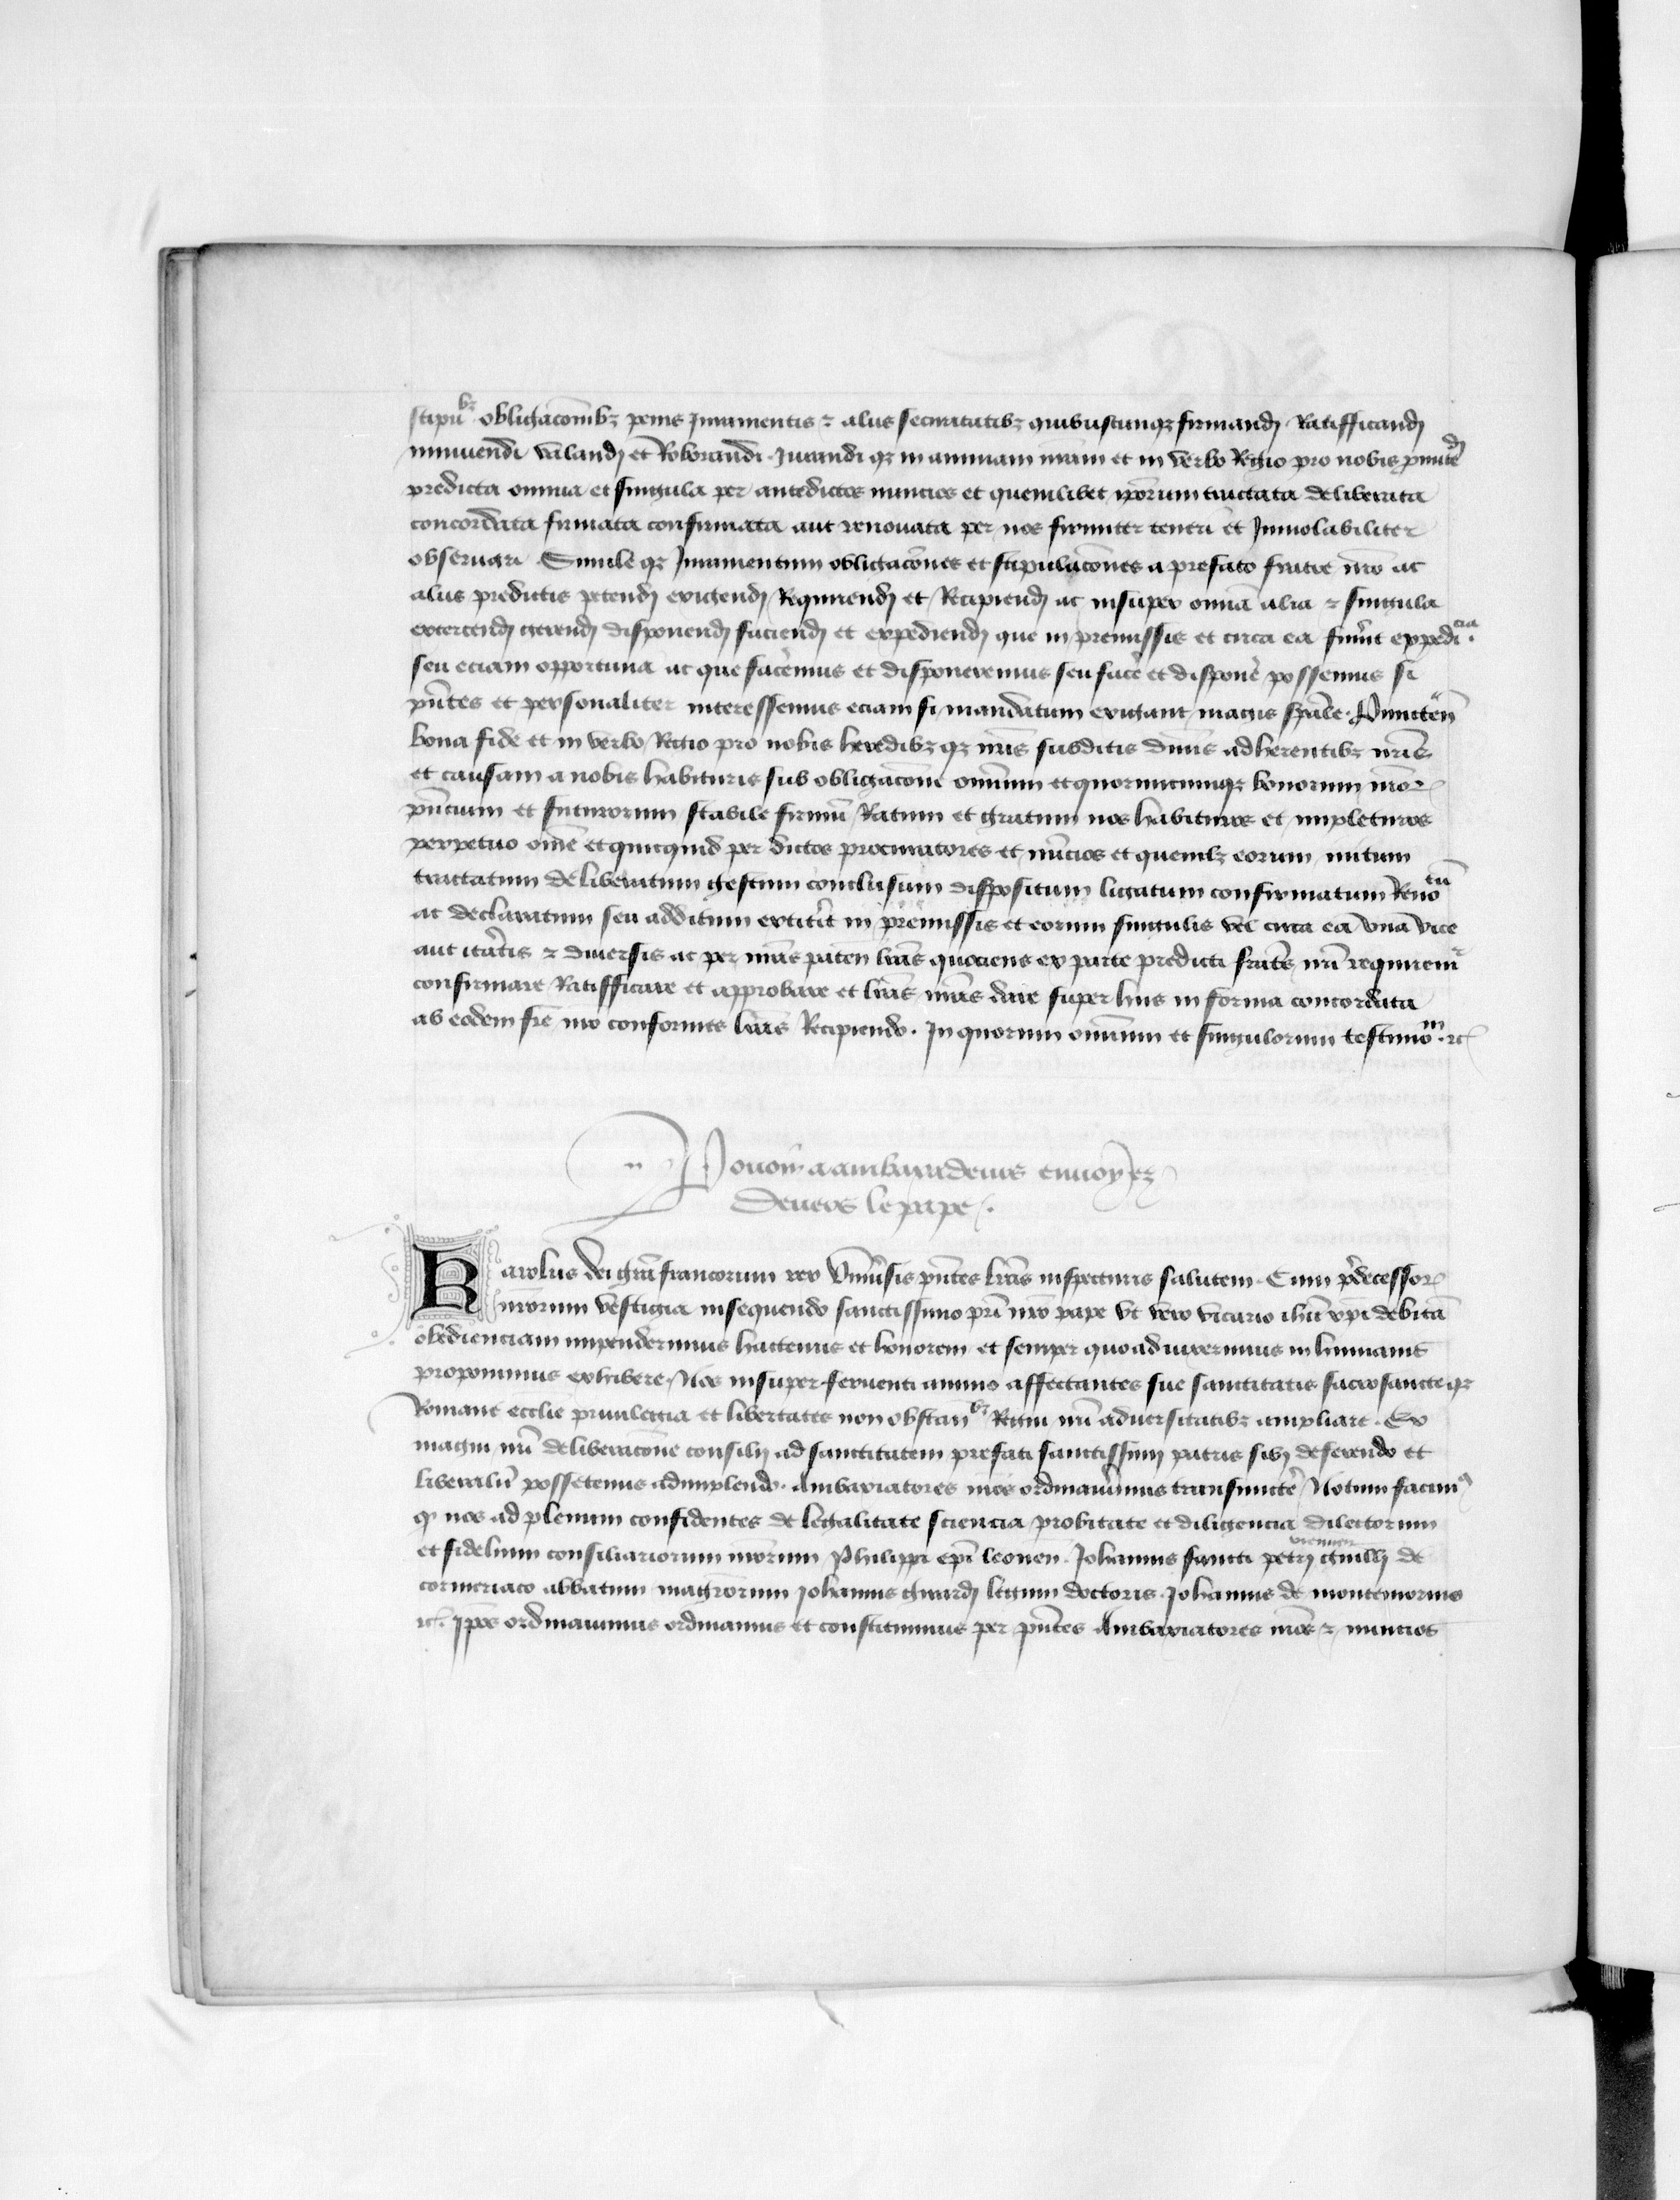 stipu bz obligacōnibz penis Juramentis et aliis securitatibz quibuscunqz firmandj Ratifficandj
innuendi vālandj et Roborandi. Jurandi qz in animam nrām et in verbo Regio pro nobis
predicta omnia et singula per antedictos nuncios et quemlibet ip̄orum tractata deliberata
concordata firmata confirmata aut renouata per nos firmiter teneri et Inuiolabiliter
obseruari. Simile qz Juramentum obligacōnes et stipulacōnes a prefato fratre nrō ac
aliis predictis petendj exigendj Requirendj et Recipiendj ac insuper omīa alia et singula
exercendj gerendj disponendj faciendj et expediendj que in premissis et circa ea fuerint expedi cia.
seu eciam opportuna ac que facemus et disponeremus seu facē et disponē possemus si
pn̄tes et personaliter interessemus eciam si mandatum exigant magis spāle. Promitten
bona fide et in verbo Regio pro nobis heredibz qz nrīs subditis adherentibz nrīs
et causam a nobis habituris sub obligacōne omnium et quorumcumqz bonorum nrōr
pn̄cium et futurorum stabile firmū Ratum et gratum nos habituros et impleturos
perpetuo omē et quicquid per dictos procuratores et nūcios et quemlz eorum initum
tractatum deliberatum gestum conclusum dispositum ligatum confirmatum Reno tū
ac declaratum seu additum extitit in premissis et eorum singulis vel circa ea vna vice
aut itātis et diuersis ac per nrās paten lrās quociens ex parte predicti fratris nrī requirem
confirmare Ratifficare et approbare et lrās nrās dare super hiis in forma concordata
ab eodem frē nro conformes lrās Recipiendo. In quorum omnium et singulorum testimo m. rc
Pouoir a ambaxadeurs enuoyez
deuers le pape.
Karolus dei grā francorum rex Vniuersis pn̄tes lrās inspecturis salutem. Cum p̄decessor
nrōrum vestigia insequendo sanctissimo prī nrō pape vt vero vicario ihū xp̄i debitā
obedienciam impenderimus hactenus et honorem et semper quoad uixerimus in humanis
proponimus exhibere. Nos insuper feruenti animo affectantes sue sanctitatis sacrosancte qz
Romane ecclīe priuilegia et libertates non obstan bz Regni nrī aduersitatibz ampliare. Ex
magni nrī deliberacōne consilij ad sanctitatem prefati sanctissimj patris sibj deferendo et
liberalit̄ possetenus adimplendo. Ambaxiatores nrōs ordinauimus transmictē Notum facim
qz nos ad plenum confidentes de legalitate sciencia probitate et diligencia dilectorum
et fidelium consiliariorum nrōrum Philippi epī leonen. Johannis sancti petrj viennen guillj de
cormeriaco abbatum magrōrum Johannis girardj legum doctoris. Johannis de montemorino
rc. Ip̄os ordinauimus ordinamus et constituimus per pn̄tes Ambaxiatores nrōs et nuncios